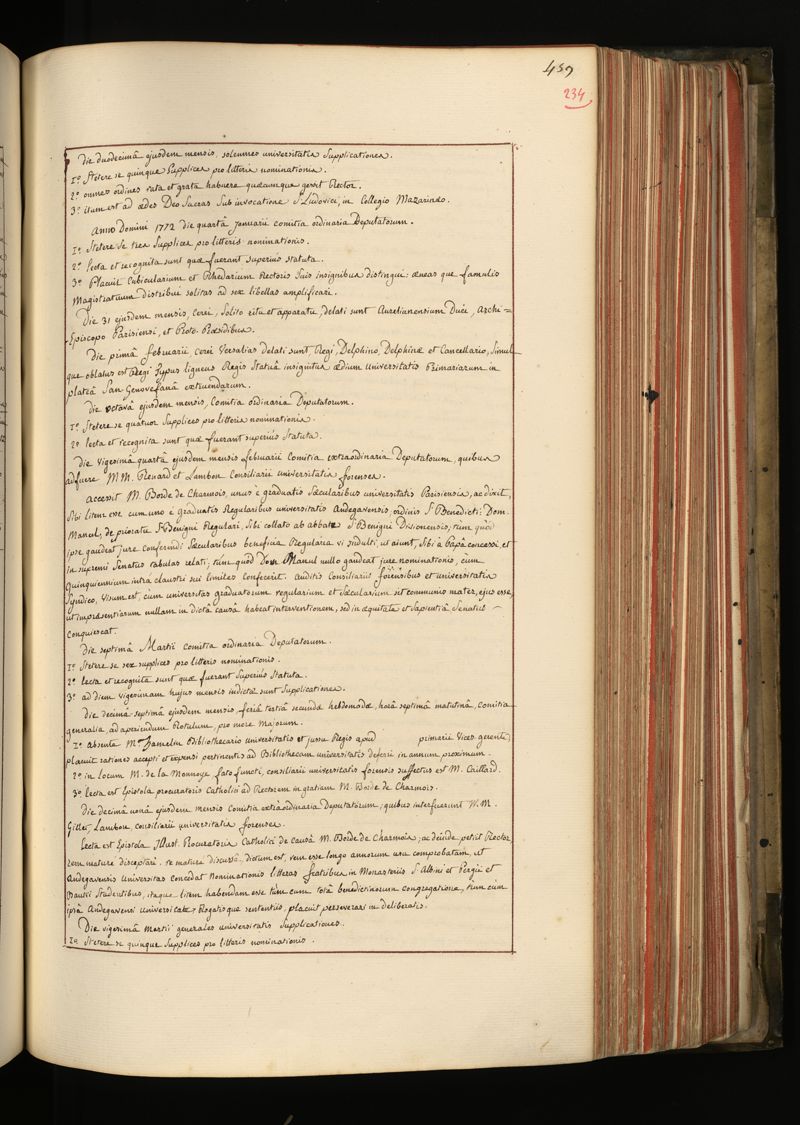 459
234
Die duodecimâ ejusdem mensis, solemnes universitatis Supplicationes.
1.º Stetere se quinque Supplices pro litteris nominationis.
2.º omnes ordines rata et grata habuere quæcumque gessit Rector.
3.º itum est ad ædes Deo Sacras Sub invocatione Sti Ludovici, in Collegio Mazarinæo.
Anno Domini 1772 die quartâ Januarii comitia ordinaria Deputatorum.
1.º Stetere Se tres Supplices pro litteris nominationis.
2.º Lecta et recognita sunt quæ fuerant superiùs statuta.
3.º Placuit Cubicularium et Rhedarium Rectoris Suis insignibus distingui: æneas que famulis
Magistratuum distribui solitas ad sex libellas amplificari.
Die 31 ejusdem mensis, Cerei, Solito ritu et apparatu, delati sunt Aurelianensium Duci, Archi=
-Episcopo Parisiensi, et Proto-Præsidibus.
Die primâ februarii Cerei Versalias delati sunt Regi, Delphino, Delphinæ et Cancellario, Simul
que oblatus est Regi typus ligneus Regis Statuâ insignitus ædium universitatis Primariarum in
plateâ San Genovefanâ extruendarum.
Die octavâ ejusdem mensis, Comitia ordinaria Deputatorum.
1.º Stetere se quatuor Supplices pro litteris nominationis.
2.º lecta et recognita sunt quæ fuerant superiùs Statuta.
Die vigesimâ quartâ ejusdem mensis februarii Comitia extraordinaria Deputatorum, quibus
adfuere M.M. Renard et Lambon Consiliarii universitatis forenses.
Accessit M. Borde de Charmois, unus è graduatis Sæcularibus universitatis Parisiensis, ac dixit,
Sibi litem esse cum uno è graduatis Regularibus universitatis Andegavensis, ordinis Sti Benedicti: Dom.
Manul, de prioratu Sti Benigni Regulari, Sibi collato ab abbate Sti Benigni Divionensis; tùm quòd
ipse gaudeat jure conferendi Sæcularibus beneficia Regularia vi Indulti, ut aiunt, Sibi à Papâ concessi, et
in supremi Senatus tabulas relati; tùm quòd Dom Manul nullo gaudeat jure nominationis, cùm
Quinquennium intra claustri sui limites confecerit. auditis Consiliariis forensibus et universitatis
Syndico, Visum est, cùm universitas graduatorum regularium et Sæcularium sit communis mater, ejus esse,
ut in præsentiarum nullam in dictâ causâ habeat interventionem, sed in æquitate et Sapientiâ Senatûs
conquiescat.
Die septimâ Martii comitia ordinaria Deputatorum.
1.º Stetere se sex supplices pro litteris nominationis.
2.º lecta et recognita sunt quæ fuerant Superiùs Statuta.
3.º ad diem vigesimam hujus mensis indictæ sunt Supplicationes.
Die decimâ septimâ ejusdem mensis, feriâ tertiâ secundæ hebdomadæ, horâ septimâ matutinâ, Comitia
generalia, ad aperiendum Rotulum, pro more Majorum.
1.º Absente M. Hamelin Bibliothecario universitatis et jussu Regis apud primarii Vices gerente,
placuit rationes accepti et expensi pertinentis ad Bibliothecam universitatis deferri in annum proximum.
2.º in locum M. de la Monnoye fato functi, consiliarii universitatis forensis suffectus est M. Caillard.
3.º lecta est Epistola procuratoris Catholici ad Rectorem in gratiam M. Borde de Charmois.
Die decimâ nonâ ejusdem mensis Comitia extraordinaria Deputatorum, quibus interfuerunt M.M.
Gillet, Lambon, consiliarii universitatis forenses.
Lecta est Epistola Illust. Procuratoris Catholici de causâ M. Borde de Charmois, ac deinde petit Rector
rem mature disceptari. re maturè discussâ, dictum est, rem esse longo annorum usu comprobatam, ut
Andegavensis Universitas concedat nominationis litteras fratribus in Monasteriis Sti Albini et Sergii et
Bacci Studentibus, itaque litem habendam esse tùm cum totâ benedictinorum Congregatione, tùm cum
ipsâ Andegavensi Universitate. Rogatis que sententiis, placuit perseverari in deliberatis.
Die vigesimâ Martii generales universitatis Supplicationes.
1.º Stetere se quinque Supplices pro litteris nominationis.